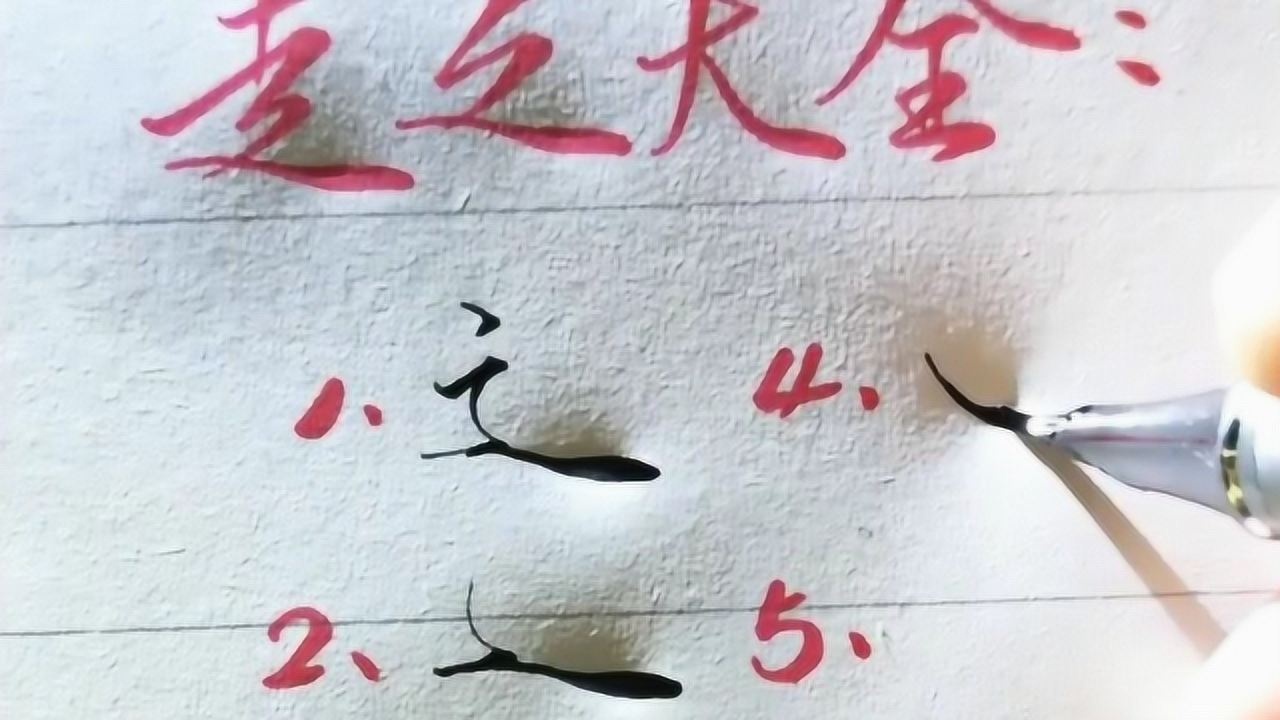 走之大全：
1、辶 4、
2、辶 5、